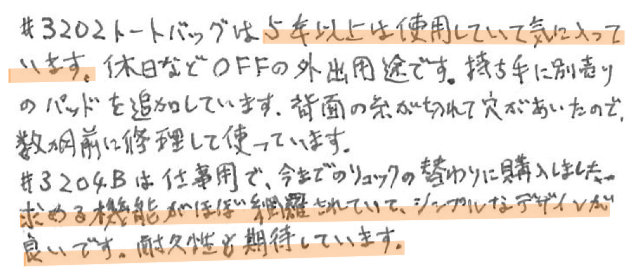 #3202トートバッグは5年以上は使用していて気に入って
います。休日などOFFの外出用途です。持ち手に別売り
のパッドを追加しています。背面の糸が切れて穴があいたので、
数カ月前に修理して使っています。
#3204Bは仕事用で、今までのリュックの替わりに購入しました。
求める機能がほぼ網羅されていて、シンプルなデザインが
良いです。耐久性も期待しています。